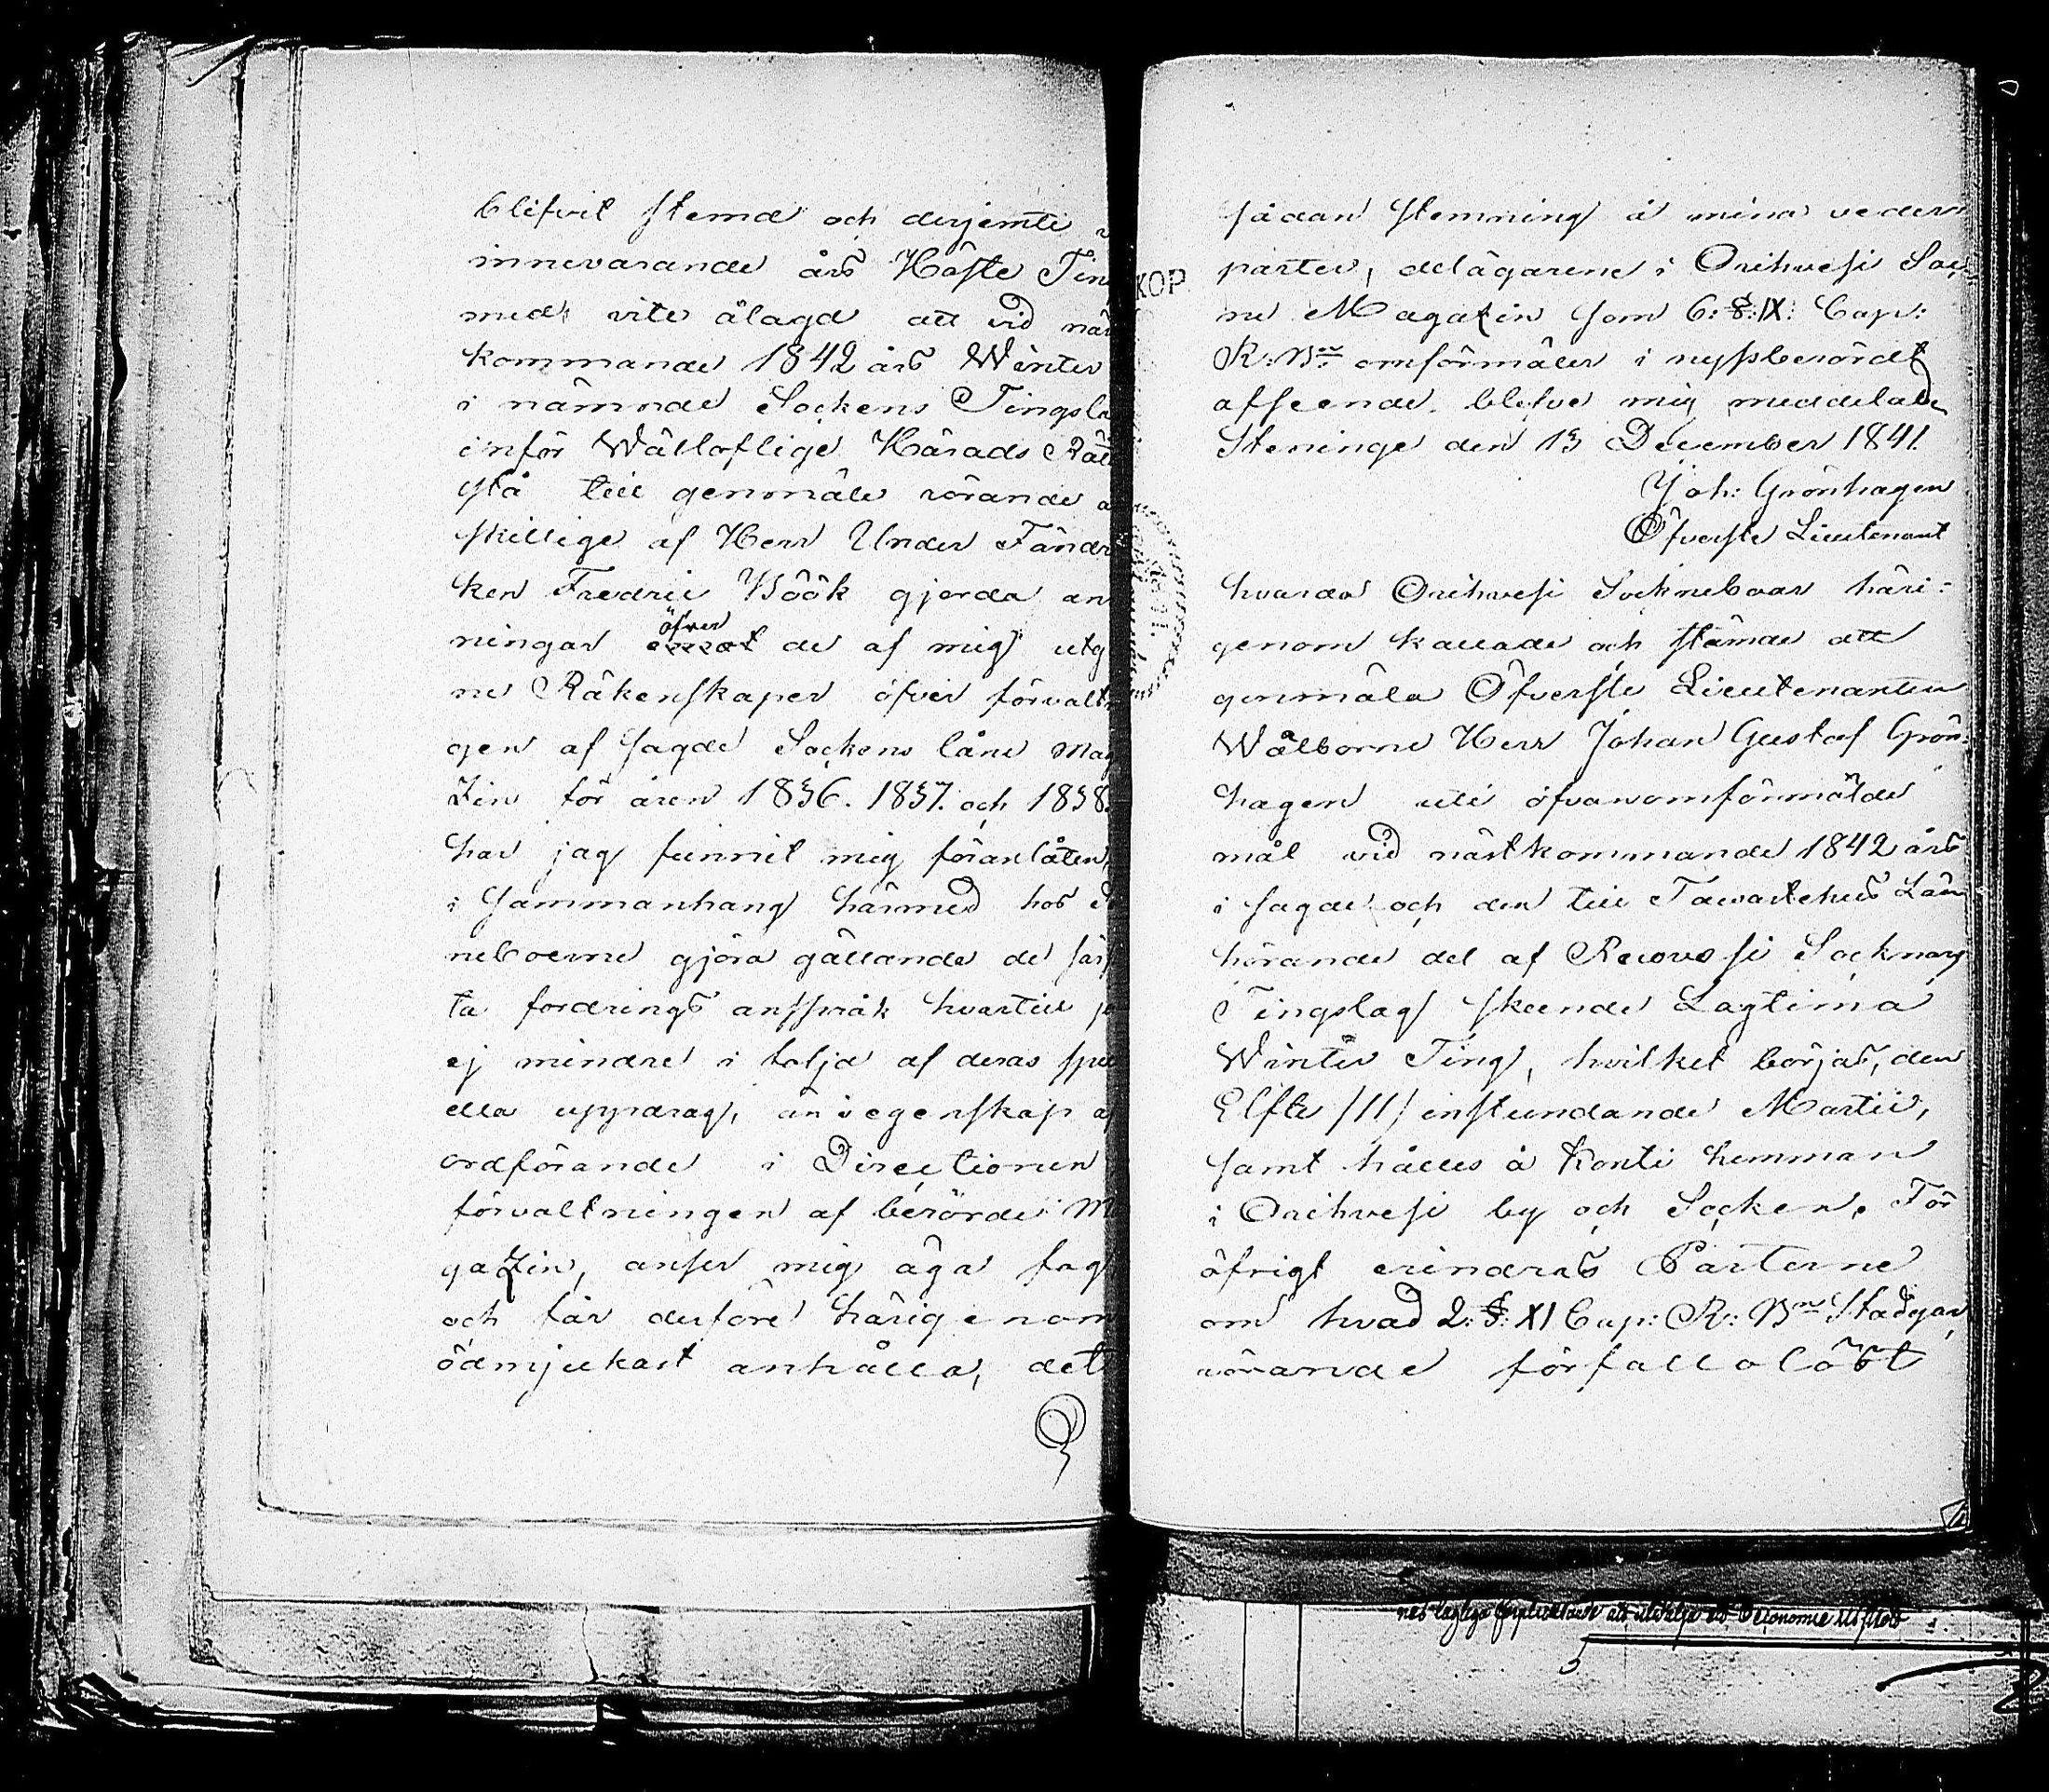 blifvit stemd och derjemte
innevarande års Höste Tin
med vite ålagd att vid nä
kommande 1842 års Winter
i nämnde Sockens Tingsla
inför Wällofliga Härads Rätt
stå till genmäle rörande a
skillige af Herr Under Fändr
ken Fredric Böök gjorda an
ningar öfver de af mig utg
ne Räkenskaper öfver förvaltn
gen af sagde Sockens låne Mag
Zin för åren 1836. 1837. och 1838.
har jag funnit mig föranlåten,
i sammanhang härmed hos S
neboerne gjöra gällande de sär
ta fordrings anspråk hvartill j
ej mindre i tolja af deras spec
ella uppdrag, än i egenskap a
ordförande i Directionen
förvaltningen af berörde M
gaZin, anser mig äga fog
och får derföre härigenom
ödmjukast anhålla, det
KOP
sådan stemning å mina veder
parter, delägarene i Orihvesi Soc-
ne Magazin som 6: §: IX: Cap:
R: Bn omförmäler i nyssberördt
afseende, blefve mig meddelad
Steninge den 13 December 1841.
Joh: Grönhagen
Öfverste Lieutenant
hvarda Orihvesi Sockneboar häri-
genom kallade och stämde att
genmäla Öfverste Lieutenanten
Wälborne Herr Johan Gustaf Grön-
hagen uti ofvanomförmälde
mål vid nästkommande 1842 års
i sagde och den till Tawastehus Län
hörande del af Ruovesi Socknars
Tingslag skeende Lagtima
Winter Ting, hvilket börjas, den
Elfte /11/ instundande Martii,
samt hålles å Konti hemman
i Orihvesi by och Socken. För
öfrigt erindras Parterne
om hvad 2: §: XI Cap: R: Bn Stadgar
rörande förfallolöst